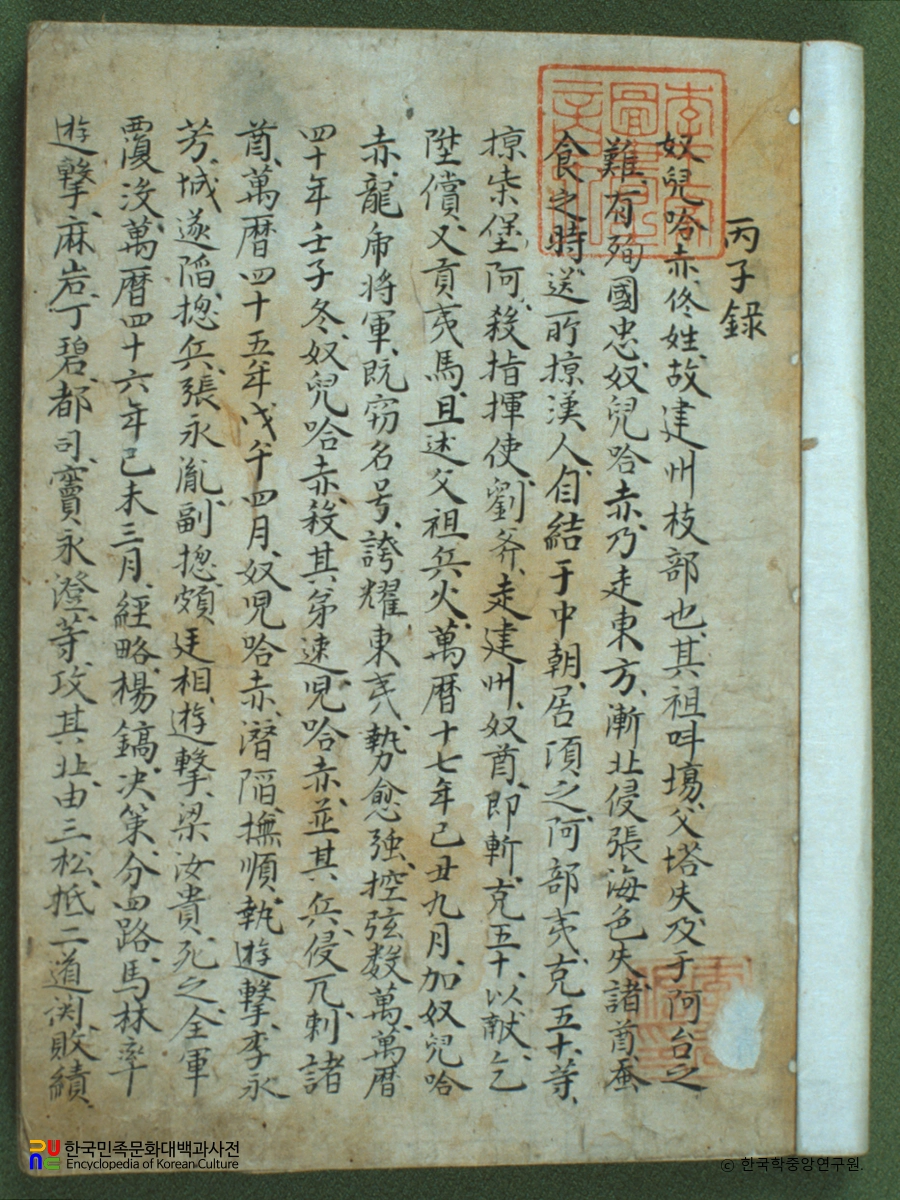 丙子錄
奴兒哈赤佟姓故建州枝部也其祖呌塲父塔失及于阿台之
難有殉國忠奴兒哈赤乃走東方漸北侵張海色失諸酋蚕
食之時送所掠漢人自結于中朝居頃之阿部夷克五十等
掠柴堡阿殺指揮使劉斧走建州奴酋即斬克五十以献乞
陞償又貢夷馬且述父祖兵火萬曆十七年己丑九月加奴兒哈
赤龍帍將軍既窃名号誇耀東夷勢愈强控弦数萬萬曆
四十年壬子冬奴兒哈赤殺其弟速児哈赤並其兵侵兀剌諸
酋萬曆四十五年戊午四月奴児哈赤潜陷撫順執遊擊李永
芳城遂陷摠兵張永胤副摠頗廷相遊擊梁汝貴死之全軍
覆没萬曆四十六年己未三月經略楊鎬决策分四路馬林率
遊擊麻岩丁碧都司竇永澄等攻其北由三松抵二道関敗績
한국민족문화대백과사전
Encyclopedia of Korean Culture
© 한국학중앙연구원.